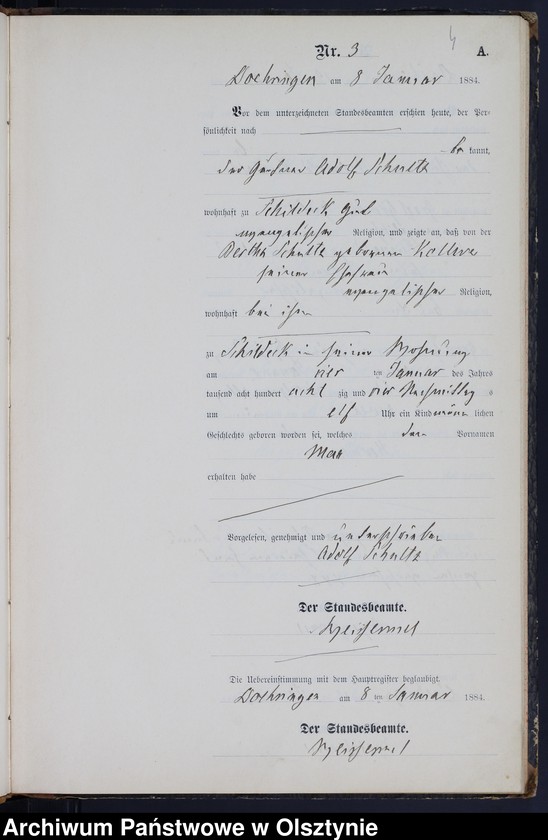 4
Nr. 3 A.
Doehringen am 8 Januar 1884.
Vor dem unterzeichneten Standesbeamten erschien heute, der Per-
sönlichkeit nach
be kannt,
der Adolf Schultz
wohnhaft zu Schildeck Gut
evangelischer Religion, und zeigte an, daß von der
Bertha Schultz geborenen
seiner Ehefrau
evangelischer Religion,
wohnhaft bei ihm
zu Schildeck in seiner Wohnung
am vier ten Januar des Jahres
tausend acht hundert acht zig und vier Nachmittag s
um elf Uhr ein Kind männ lichen
Geschlechts geboren worden sei, welches den Vornamen
Max
erhalten habe
Vorgelesen, genehmigt und unterschrieben
Adolf Schultz
Der Standesbeamte.
Die Uebereinstimmung mit dem Hauptregister beglaubigt.
Doehringen am 8 ten Januar 1884.
Der Standesbeamte.
Archiwum Państwowe w Olsztynie